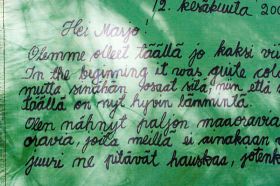 12. kesäkuuta 200
Hei Marjo!
Olemme olleet täällä jo kaksi vii
In the beginning it was quite col
mutta sinähän osaat sitä, niin että
Täällä on nyt hyvin lämmintä.
Olen nähnyt paljon maaoravia
oravia, joita meillä ei ainakaan
juuri ne pitävät hauskaa, joten